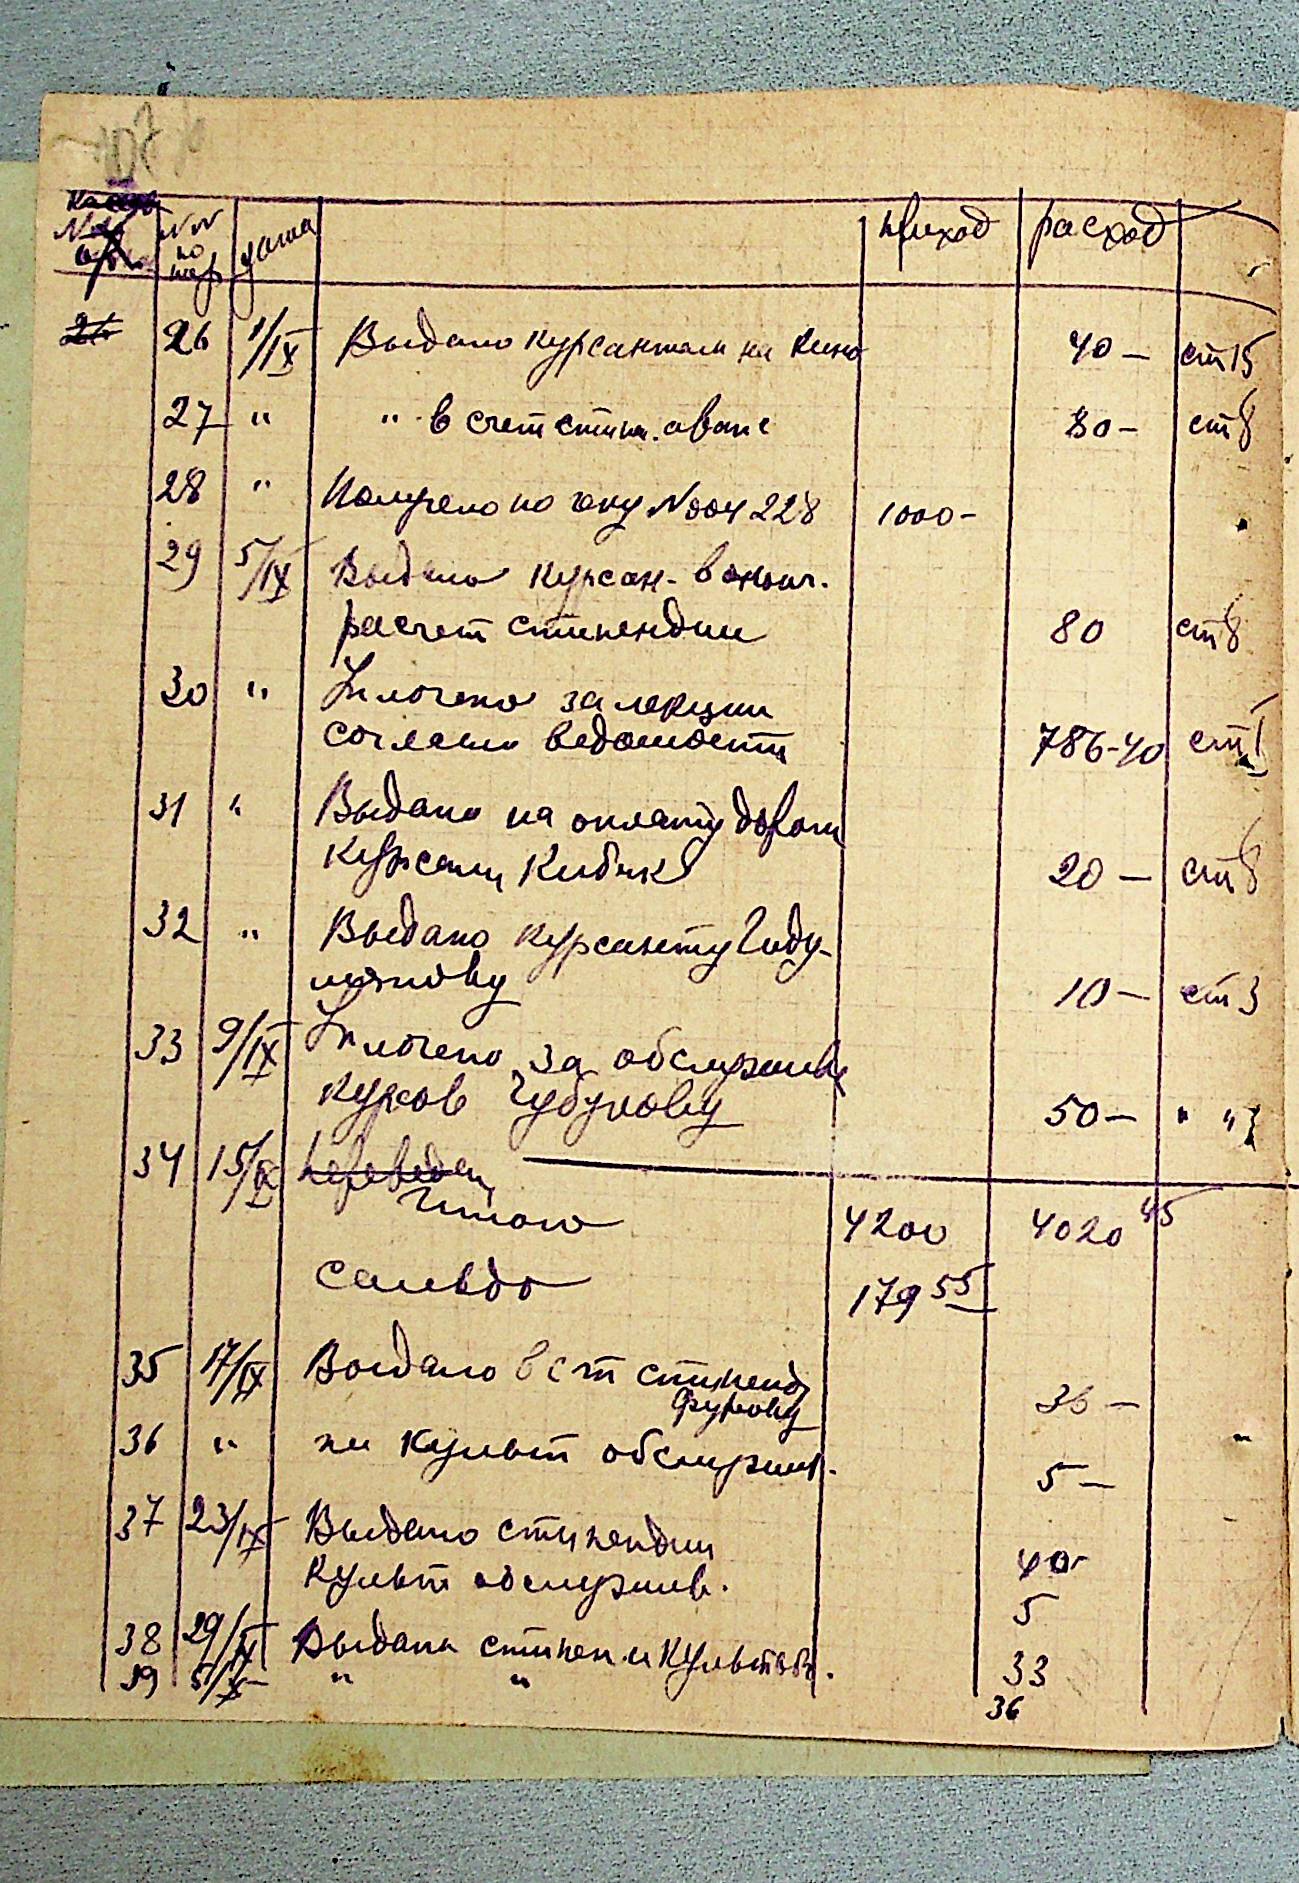 №№ по пор дата приход расход
26 1/IX Выдано курсантам на кино 40 — ст 15
27 " " в счет стип. аванс 80 — ст 8
28 " Получено по чеку № 004228 1000 —
29 5/IX Выдано курсан- в оконч.
расчет стипендии 80 ст 8
30 " Уплочено за лекции
согласно ведомости 786-40 ст 1
31 " Выдано на оплату дороги
курсанту 20 — ст 8
32 " Выдано курсанту Гиду-
лянову 10 — ст 3
33 9/IX Уплочено за обслужив
курсов Чубукову 50 — " " 3
34 15/IX переведен
Итого 4200 4020 45
сальдо 179 55
35 17/IX Выдано в ст стипенд
Фурсову 36 —
36 " на культ обслужив. 5 —
37 23/IX Выдано стипендии 40 —
культ обслужив. 5
38 29/IX Выдана стипен и культобс. 33
39 5/X " " 36